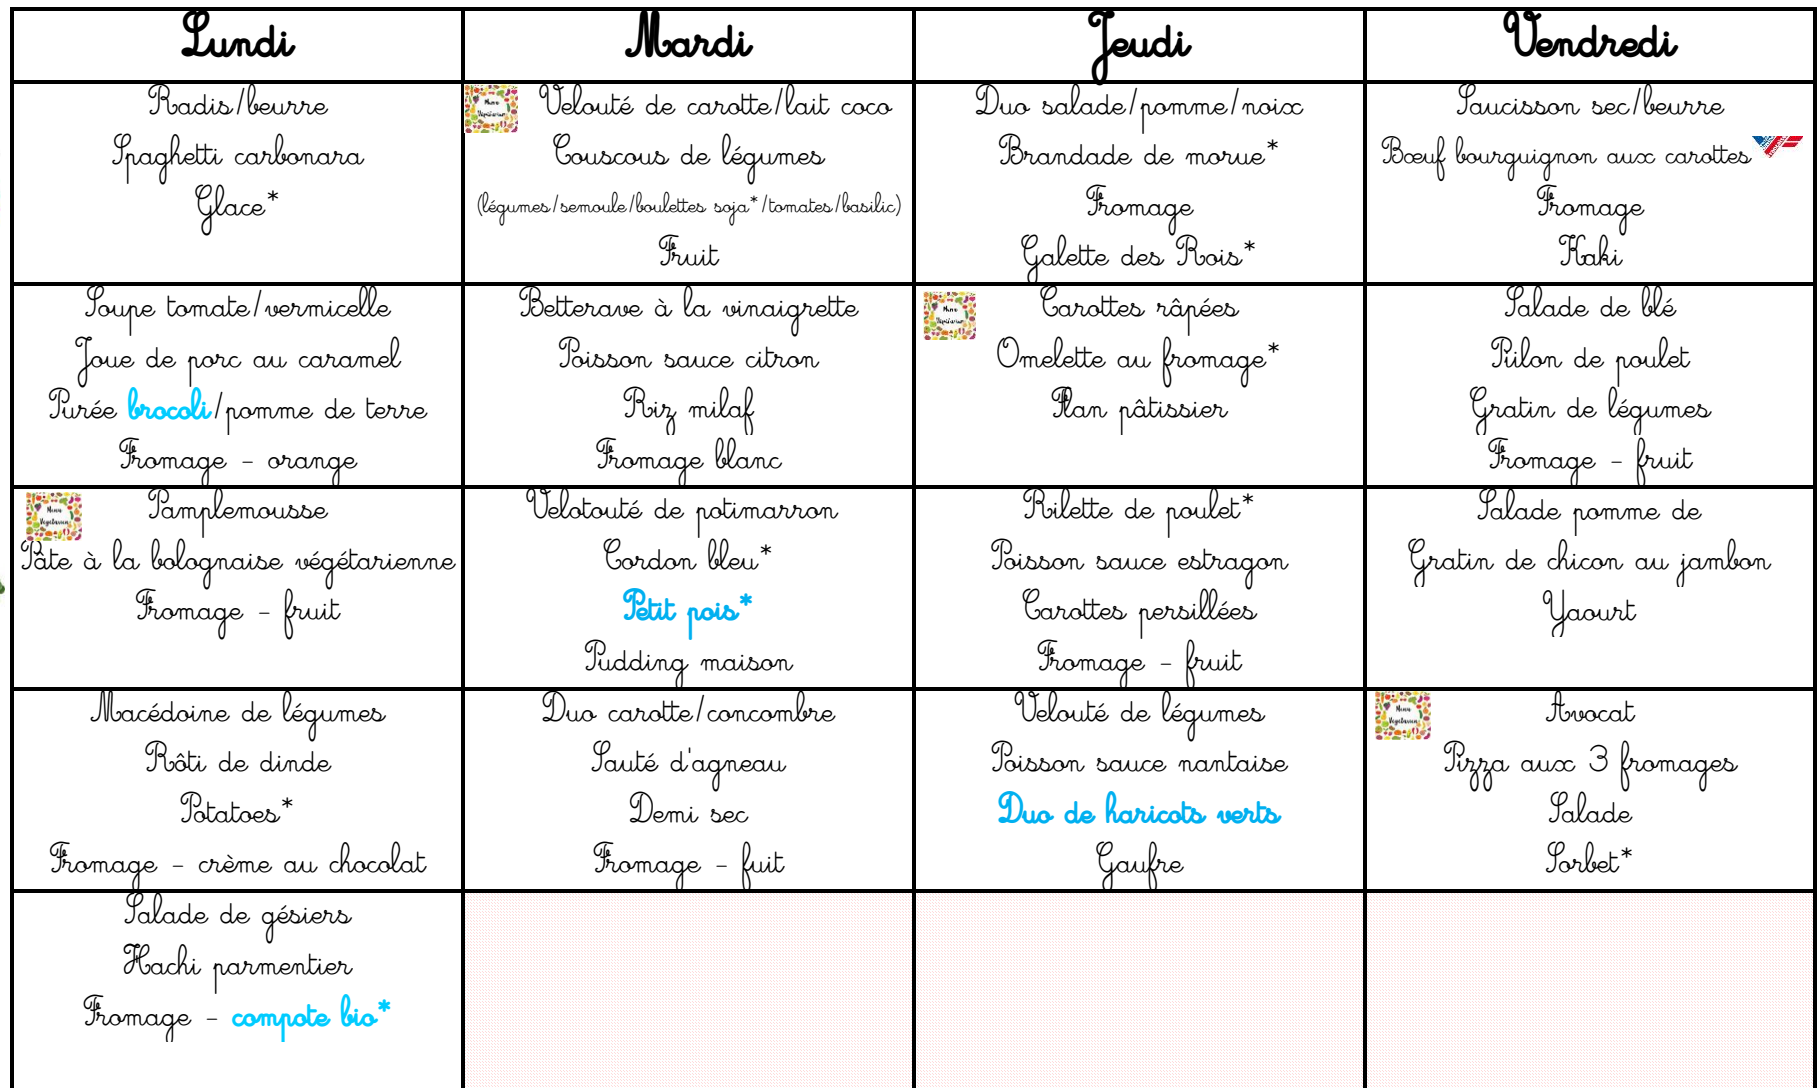 Lundi Mardi Jeudi Vendredi
Radis/beurre
Spaghetti carbonara
Glace*
Menu
Végétarien
Velouté de carotte/lait coco
Couscous de légumes
(légumes/semoule/boulettes soja*/tomates/basilic)
Fruit
Duo salade/pomme/noix
Brandade de morue*
Fromage
Galette des Rois*
Saucisson sec/beurre
Bœuf bourguignon aux carottes
Fromage
Kaki
Soupe tomate/vermicelle
Joue de porc au caramel
Purée brocoli/pomme de terre
Fromage - orange
Betterave à la vinaigrette
Poisson sauce citron
Riz milaf
Fromage blanc
Menu
Végétarien
Carottes râpées
Omelette au fromage*
Flan pâtissier
Salade de blé
Piilon de poulet
Gratin de légumes
Fromage - fruit
Menu
Végétarien
Pamplemousse
Pâte à la bolognaise végétarienne
Fromage - fruit
Velotouté de potimarron
Cordon bleu*
Petit pois*
Pudding maison
Rilette de poulet*
Poisson sauce estragon
Carottes persillées
Fromage - fruit
Salade pomme de
Gratin de chicon au jambon
Yaourt
Macédoine de légumes
Rôti de dinde
Potatoes*
Fromage - crème au chocolat
Duo carotte/concombre
Sauté d'agneau
Demi sec
Fromage - fuit
Velouté de légumes
Poisson sauce nantaise
Duo de haricots verts
Gaufre
Menu
Végétarien
Avocat
Pizza aux 3 fromages
Salade
Sorbet*
Salade de gésiers
Hachi parmentier
Fromage - compote bio*